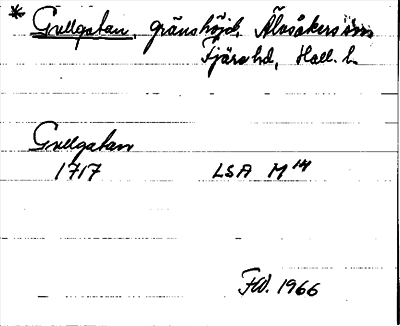 * Gullgatan, gränshöjd, Älvsåkers sn
Fjäre hd, Hall. l.
Gullgatan
1717 LSA M14
FW. 1966